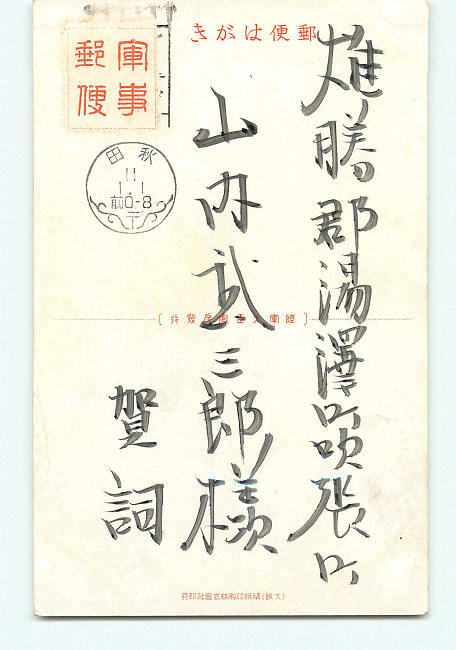 郵便はがき
軍事
郵便
秋田
11
1.1
前0-8
雄勝郡湯澤町吹張町
山内武三郎様
賀詞